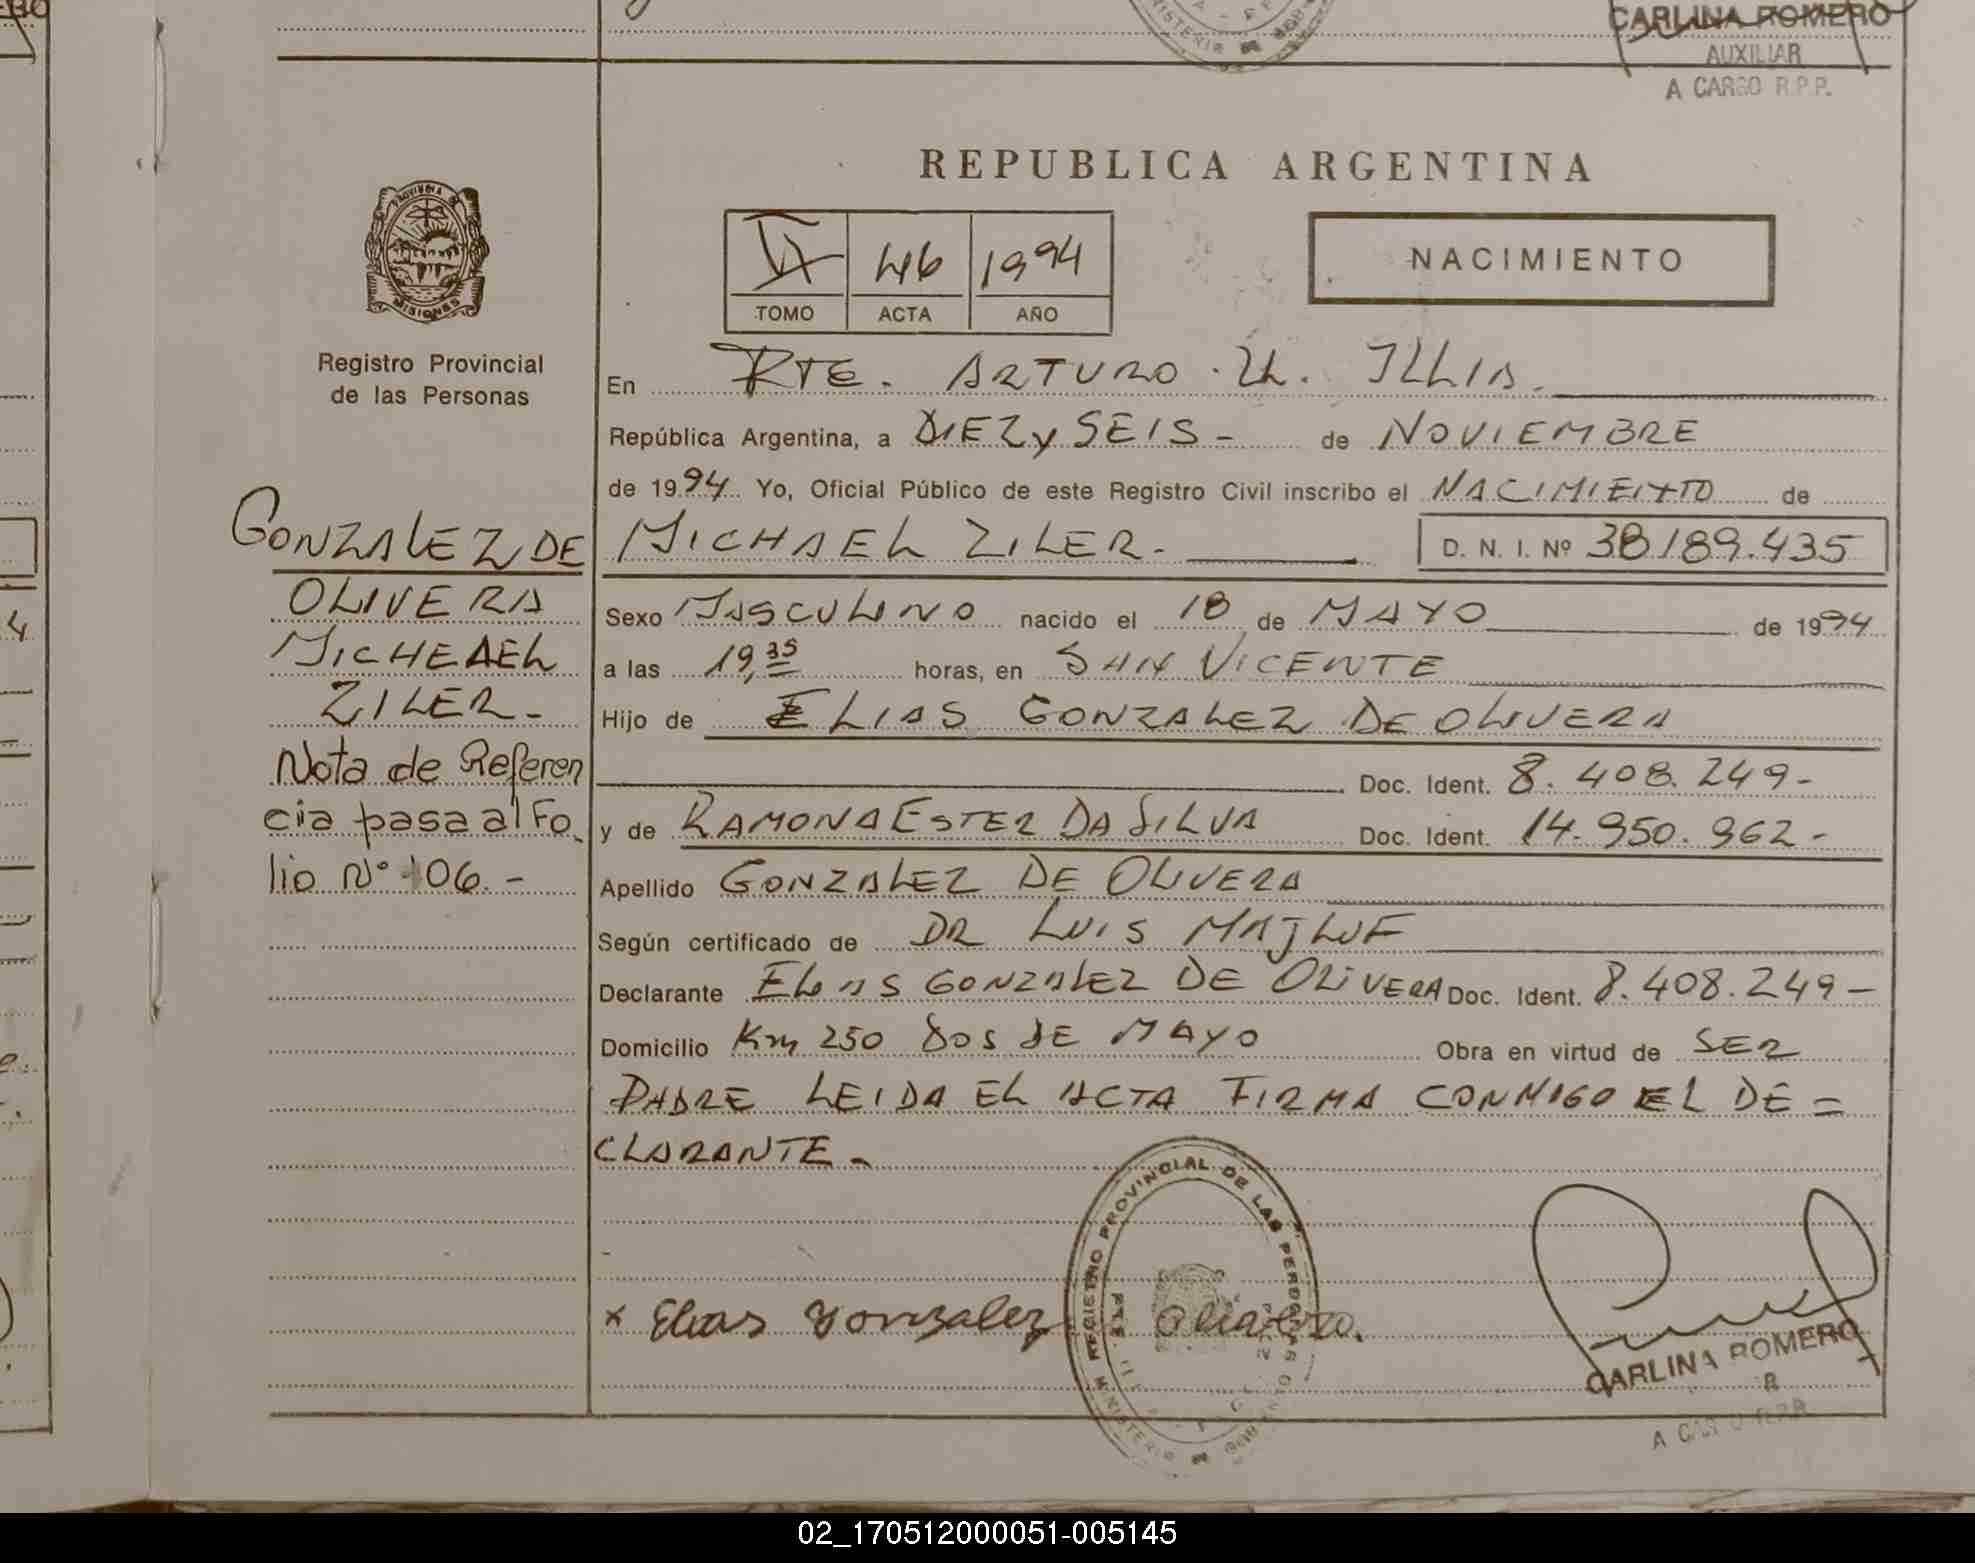 CARLINA ROMERO
AUXILIAR
A CARGO R.P.P.
REPUBLICA ARGENTINA
PROVINCIA
MISIONES
46 1994
TOMO ACTA AÑO
NACIMIENTO
Registro Provincial
de las Personas
En PTE. ARTURO U. ILLIA.
República Argentina, a DIEZ y SEIS - de NOVIEMBRE
de 1994 Yo, Oficial Público de este Registro Civil inscribo el NACIMIENTO de
MICHAEL ZILER. D. N. I. Nº 38189.435
Sexo MASCULINO nacido el 18 de MAYO de 1994
a las 19,35 horas, en SAN VICENTE
Hijo de ELIAS GONZALEZ DE OLIVERA
Doc. Ident. 8.408.249-
y de RAMONA ESTER DA SILVA Doc. Ident. 14.950.962-
Apellido GONZALEZ DE OLIVERA
Según certificado de DR LUIS MAJLUF
Declarante ELIAS GONZALEZ DE OLIVERA Doc. Ident. 8.408.249-
Domicilio Km 250 DOS DE MAYO Obra en virtud de SER
PADRE LEIDA EL ACTA FIRMA CONMIGO EL DE=
CLARANTE-
GONZALEZ DE
OLIVERA
MICHEAEL
ZILER-
Nota de Referen
cia pasa al Fo.
lio Nº 106.-
x Elias Gonzalez Olivera.
REGISTRO PROVINCIAL DE LAS PERSONAS
CARLINA ROMERO
02_170512000051-005145